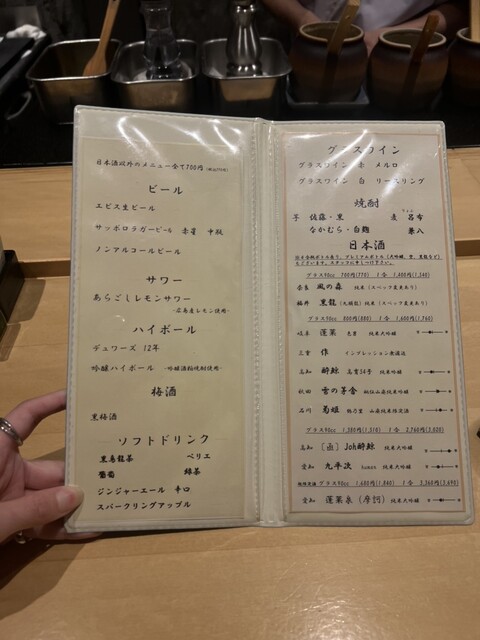 日本酒以外のメニュー全て700円(税込770円)
ビール
エビス生ビール
サッポロラガービール 赤星 中瓶
ノンアルコールビール
サワー
あらごしレモンサワー
-広島産レモン使用-
ハイボール
デュワーズ 12年
吟醸ハイボール -吟醸酒粕焼酎使用-
梅酒
黒梅酒
ソフトドリンク
黒烏龍茶 ペリエ
葡萄 緑茶
ジンジャーエール 辛口
スパークリングアップル
グラスワイン
グラスワイン 赤 メルロ
グラスワイン 白 リースリング
焼酎
芋 佐藤・黒 麦 呂布
なかむら・白麹 兼八
日本酒
グラス90cc 700円(770) 1合 1,400円(1,540)
奈良 風の森 純米(スペック変更あり)
福井 黒龍(九頭龍) 純米(スペック変更あり)
グラス90cc 800円(880) 1合 1,600円(1,760)
岐阜 蓬莱 色豊 純米大吟醸
三重 作 インプレッション無濾過
高知 酔鯨 高育54号 純米吟醸
秋田 雪の茅舎 秘伝山廃純米吟醸
石川 菊姫 鶴乃里 山廃純米限定酒
グラス90cc 1,380円(1,510) 1合 2,760円(3,020)
高知 Joh酔鯨 純米大吟醸
愛知 九平次 human 純米大吟醸
グラス90cc 1,680円(1,840) 1合 3,360円(3,690)
愛知 蓬莱泉(摩訶) 純米大吟醸